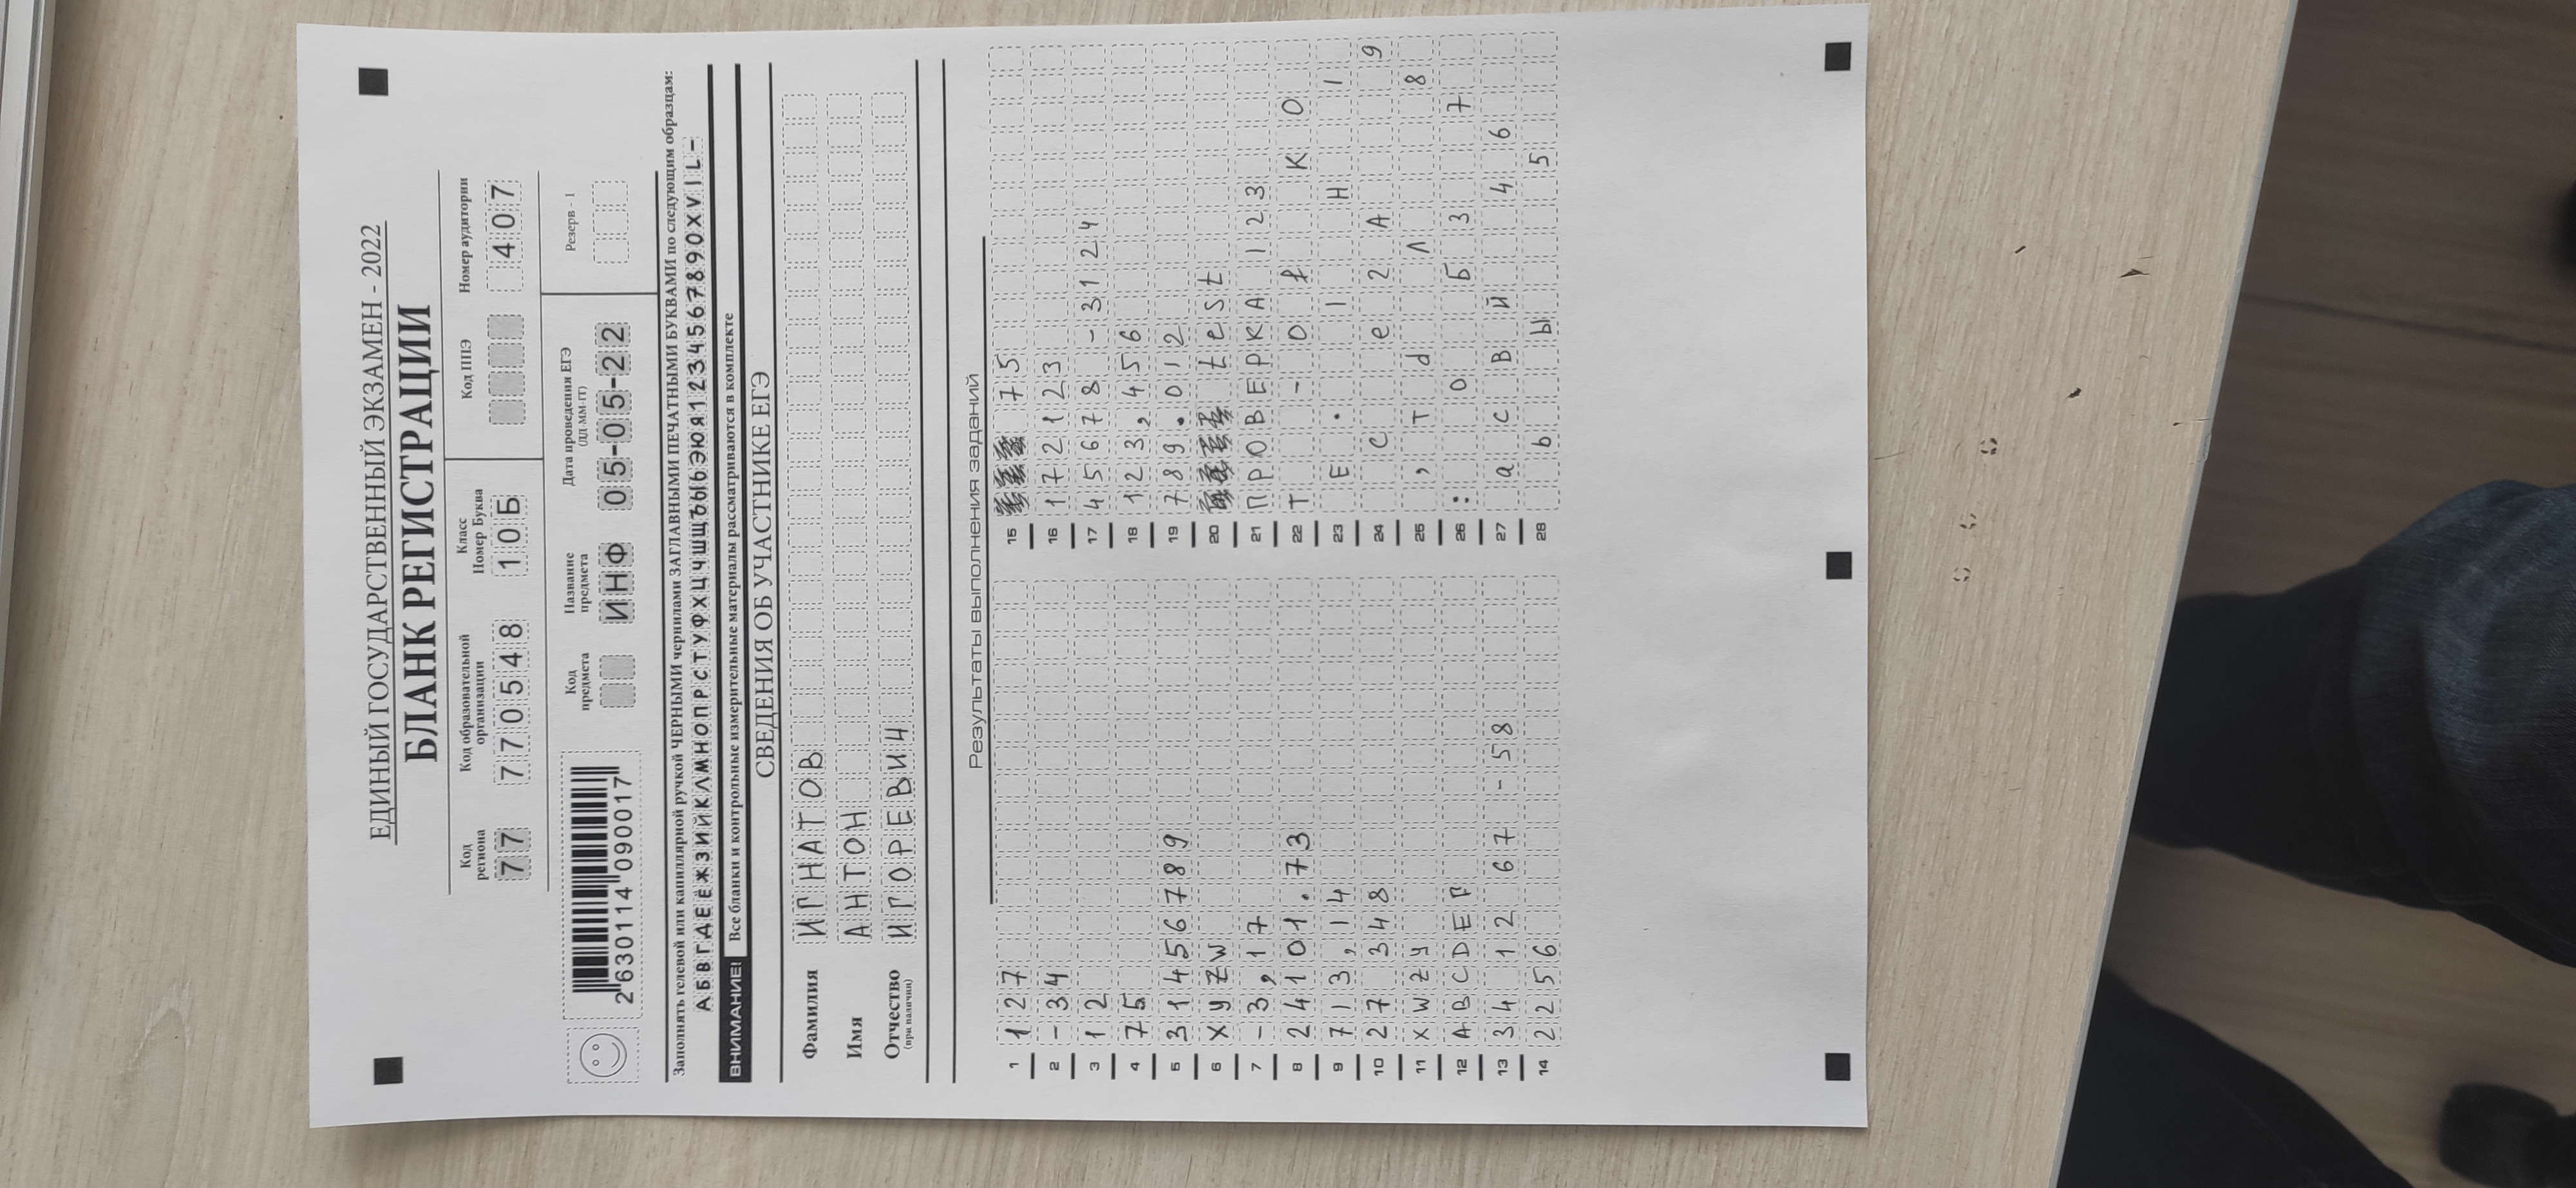 ЕДИНЫЙ ГОСУДАРСТВЕННЫЙ ЭКЗАМЕН - 2022
БЛАНК РЕГИСТРАЦИИ
Код региона
Код образовательной организации
Класс
Номер Буква
Код ППЭ
Номер аудитории
77 770548 10Б 407
Код предмета
Название предмета
Дата проведения ЕГЭ
(ДД-ММ-ГГ)
Резерв - 1
2630114090017
ИНФ 05-05-22
Заполнять гелевой или капиллярной ручкой ЧЕРНЫМИ чернилами ЗАГЛАВНЫМИ ПЕЧАТНЫМИ БУКВАМИ по следующим образцам:
АБВГДЕЁЖЗИЙКЛМНОПРСТУФХЦЧШЩЪЫЬЭЮЯ1234567890XVIL-
ВНИМАНИЕ! Все бланки и контрольные измерительные материалы рассматриваются в комплекте
СВЕДЕНИЯ ОБ УЧАСТНИКЕ ЕГЭ
Фамилия ИГНАТОВ
Имя АНТОН
Отчество ИГОРЕВИЧ
(при наличии)
Результаты выполнения заданий
1 127
2 -34
3 12
4 75
5 31456789
6 XYZW
7 -3,17
8 24101.73
9 713,14
10 27 348
11 XWZY
12 ABCDEF
13 34 12 67 -58
14 2256
15 75
16 172123
17 45678 -3124
18 123,456
19 789.012
20 test
21 ПРОВЕРКА 123
22 Т - О К О
23 Е . 1 Н 1
24 С е 2 А 9
25 , Т d Л 8
26 : О Б 3 7
27 а с В Й 4 6
28 Ь Ы 5